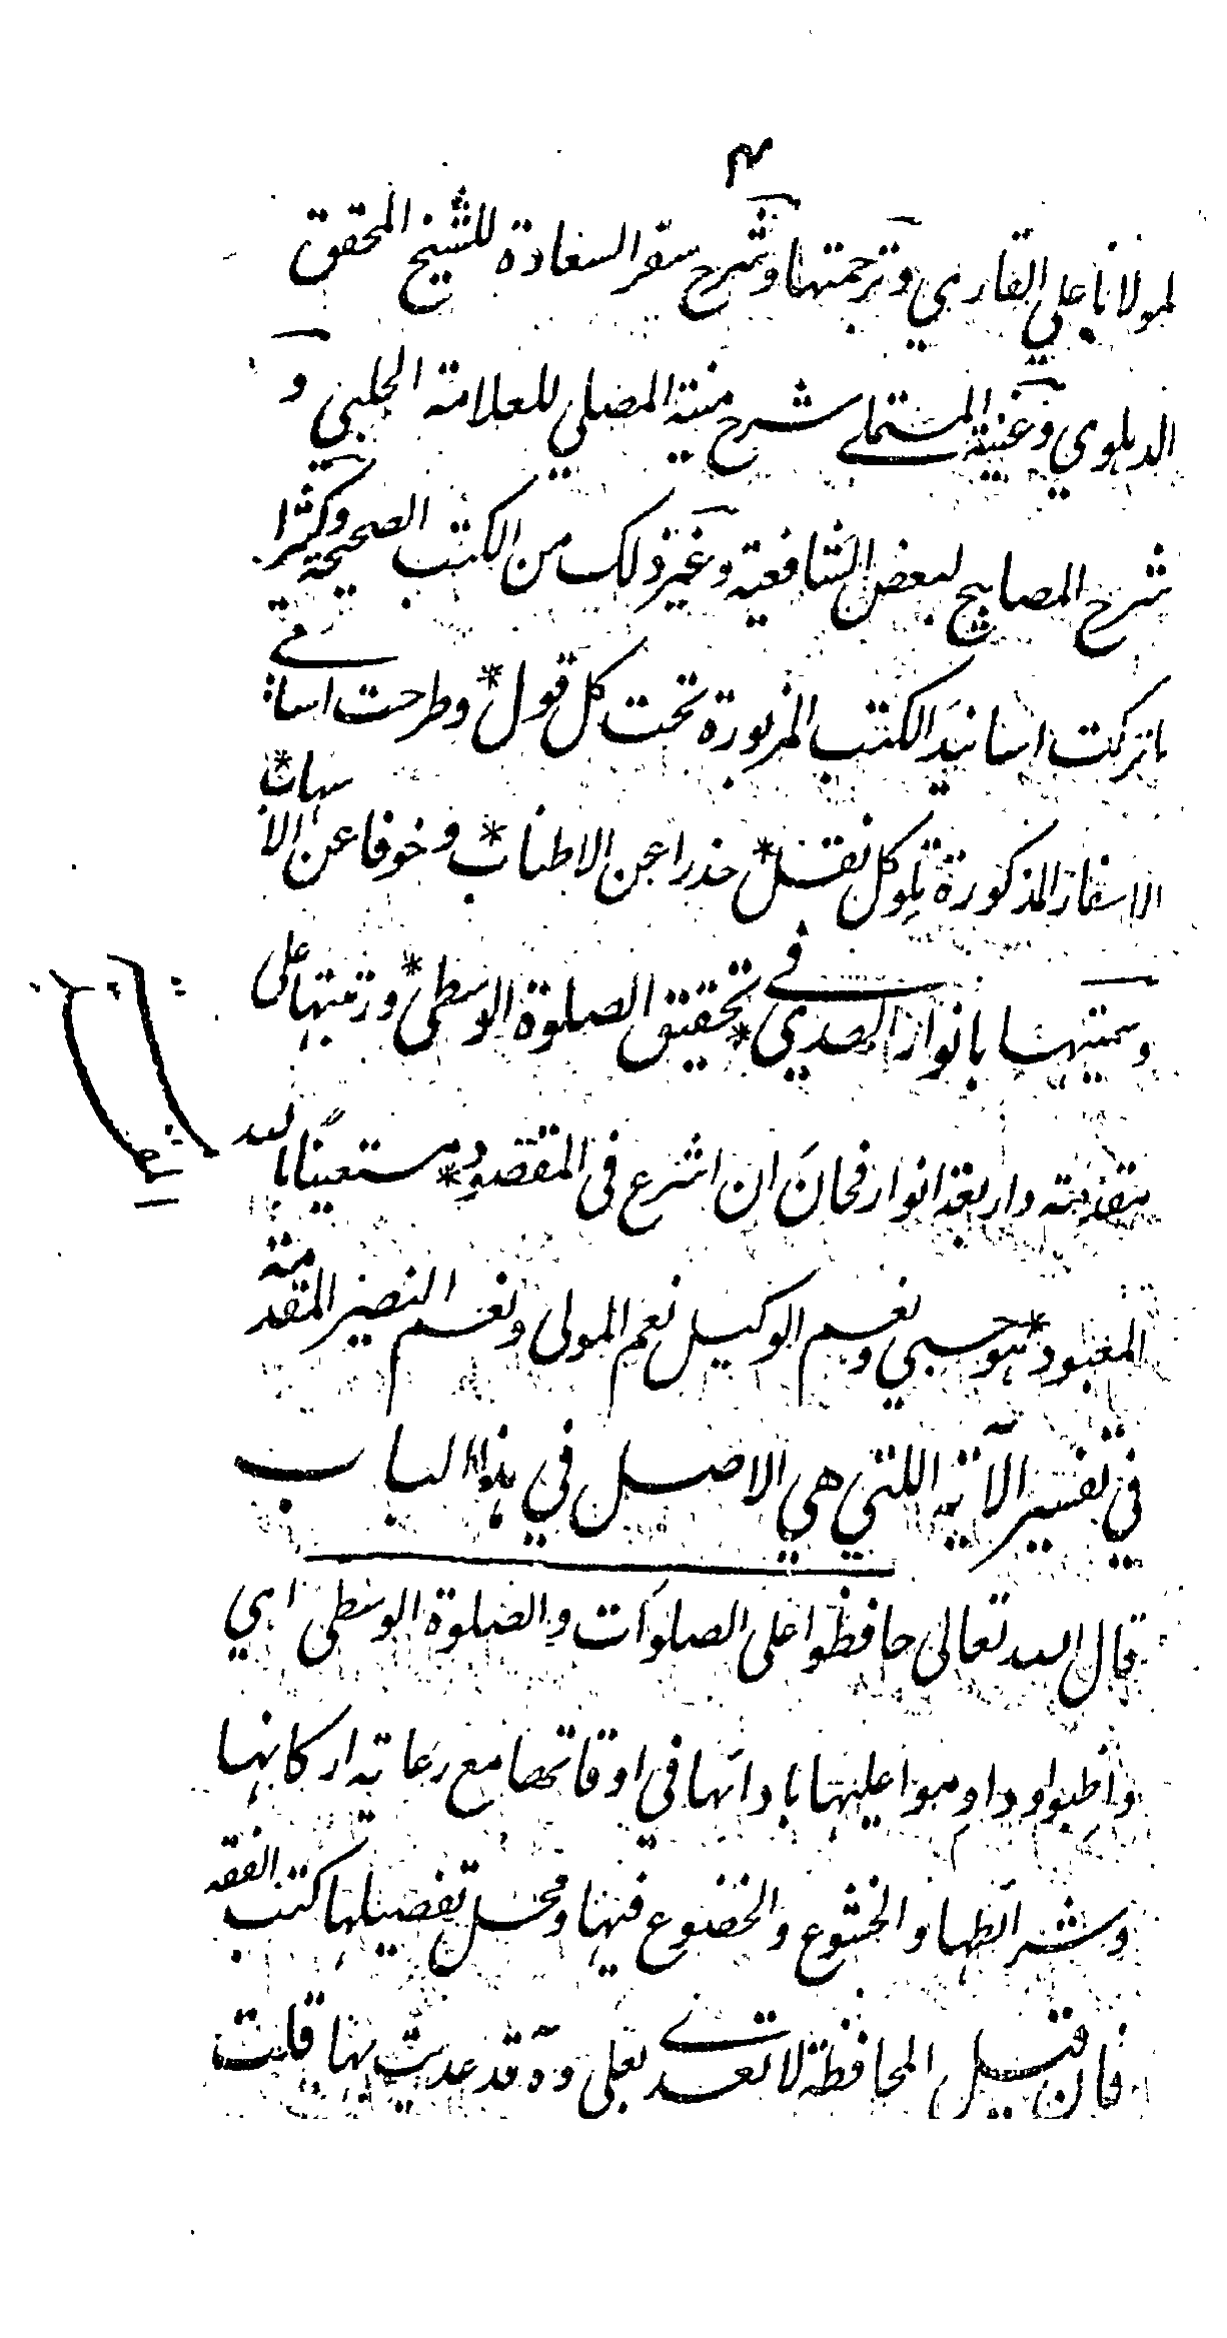 ۴
لمولانا علي القاري وترجمتها وشرح سفر السعادة للشيخ المحقق
الدهلوي وغنية المستملي شرح منية المصلي للعلامة الحلبي و
شرح المصابيح لبعض الشافعية وغير ذلك من الكتب الصحيحة وكثيرا
ما تركت اسانيد الكتب المزبورة تحت كل قول * وطرحت اسامي
الاسفار المذكورة تلو كل نقل * حذرا عن الاطناب * و خوفا عن الاسهاب *
وسميتها بانوار الهدي * في تحقيق الصلوة الوسطى * ورتبتها على
مقدمة واربعة انوار فحان ان اشرع في المقصود * مستعينا بالله
المعبود * هو حسبي ونعم الوكيل نعم المولى ونعم النصير المقدمة
في تفسير الآية اللتي هي الاصل في هذا الباب
قال الله تعالى حافظوا على الصلوات والصلوة الوسطى اي
واظبوا وداوموا عليها بادائها في اوقاتها مع رعاية اركانها
وشرائطها والخشوع والخضوع فيها ومحل تفصيلها كتب الفقه
فان قيل المحافظة لا تعدى بعلى وه قد عديت بها قلت